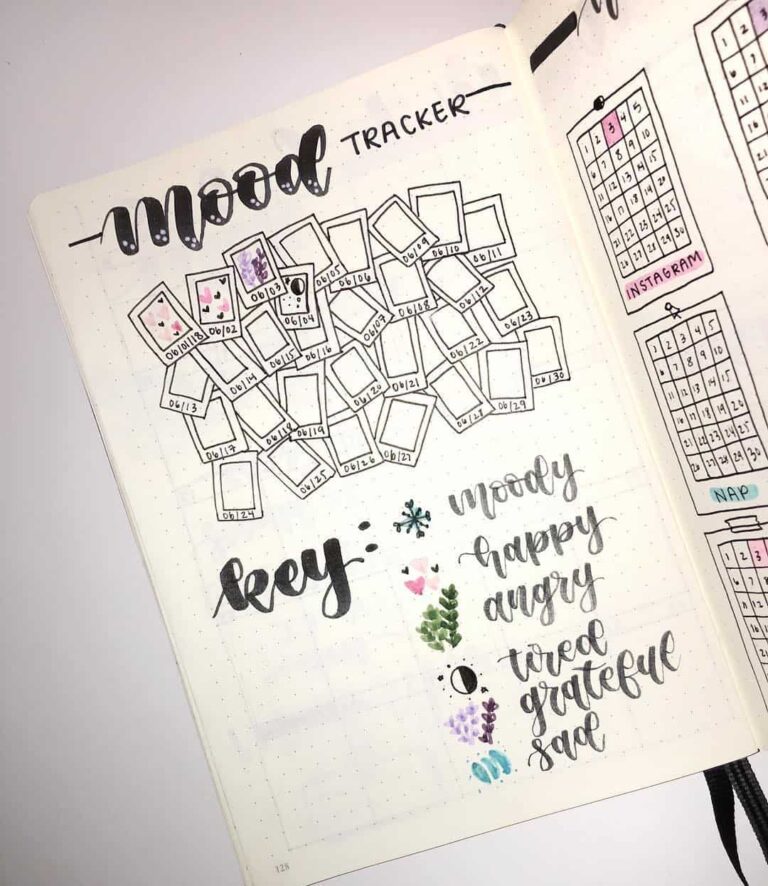 mood TRACKER
06/01/18 06/02 06/03 06/04 06/05 06/06 06/09 06/10 06/11
06/13 06/14 06/15 06/16 06/07 06/08 06/12
06/17 06/18 06/19 06/20 06/21 06/22 06/23
06/24 06/25 06/26 06/27 06/28 06/29 06/30
key:
moody
happy
angry
tired
grateful
sad
128
1 2 3 4 5
6 7 8 9 10
11 12 13 14 15
16 17 18 19 20
21 22 23 24 25
26 27 28 29 30
INSTAGRAM
1 2 3 4 5
6 7 8 9 10
11 12 13 14 15
16 17 18 19 20
21 22 23 24 25
26 27 28 29 30
NAP
1 2 3
6 7
11 12
1 2 3
6 7 8